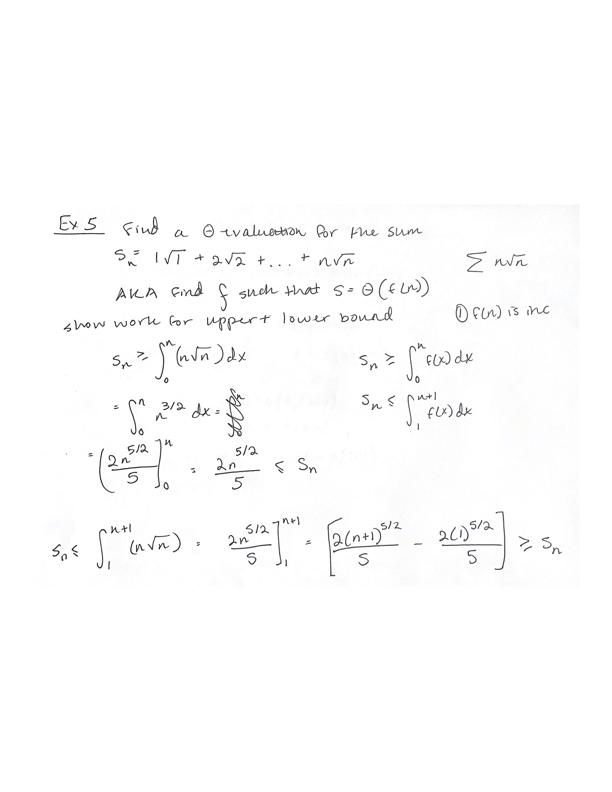 Ex 5 Find a Θ-evaluation for the sum
Sₙ = 1√1 + 2√2 + ... + n√n    ∑ n√n
AKA Find f such that S = Θ(f(n))
show work for upper + lower bound    ① f(n) is inc
Sₙ ≥ ∫₀ⁿ (n√n) dx    Sₙ ≥ ∫₀ⁿ f(x) dx
= ∫₀ⁿ n^(3/2) dx =    Sₙ ≤ ∫₁ⁿ⁺¹ f(x) dx
= (2n^(5/2)/5]₀ⁿ = 2n^(5/2)/5 ≤ Sₙ
Sₙ ≤ ∫₁ⁿ⁺¹ (n√n) = 2n^(5/2)/5]₁ⁿ⁺¹ = [2(n+1)^(5/2)/5 - 2(1)^(5/2)/5] ≥ Sₙ